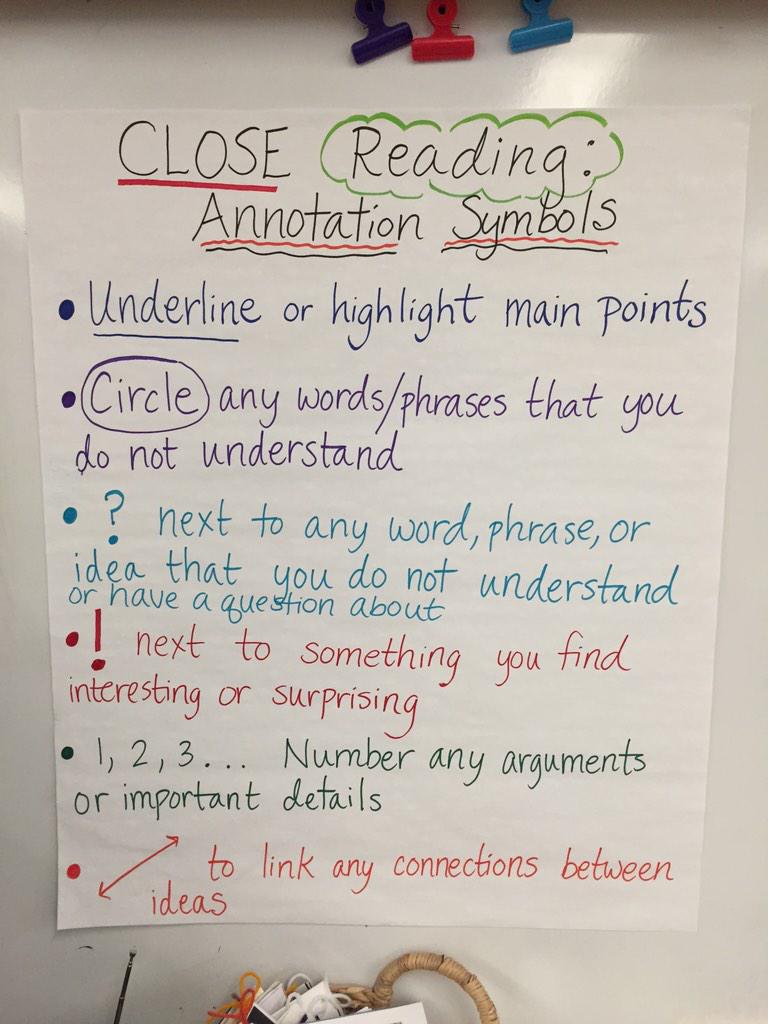 CLOSE Reading:
Annotation Symbols
• Underline or highlight main points
• Circle any words/phrases that you
do not understand
• ? next to any word, phrase, or
idea that you do not understand
or have a question about
• ! next to something you find
interesting or surprising
• 1, 2, 3... Number any arguments
or important details
• ↗ to link any connections between
ideas